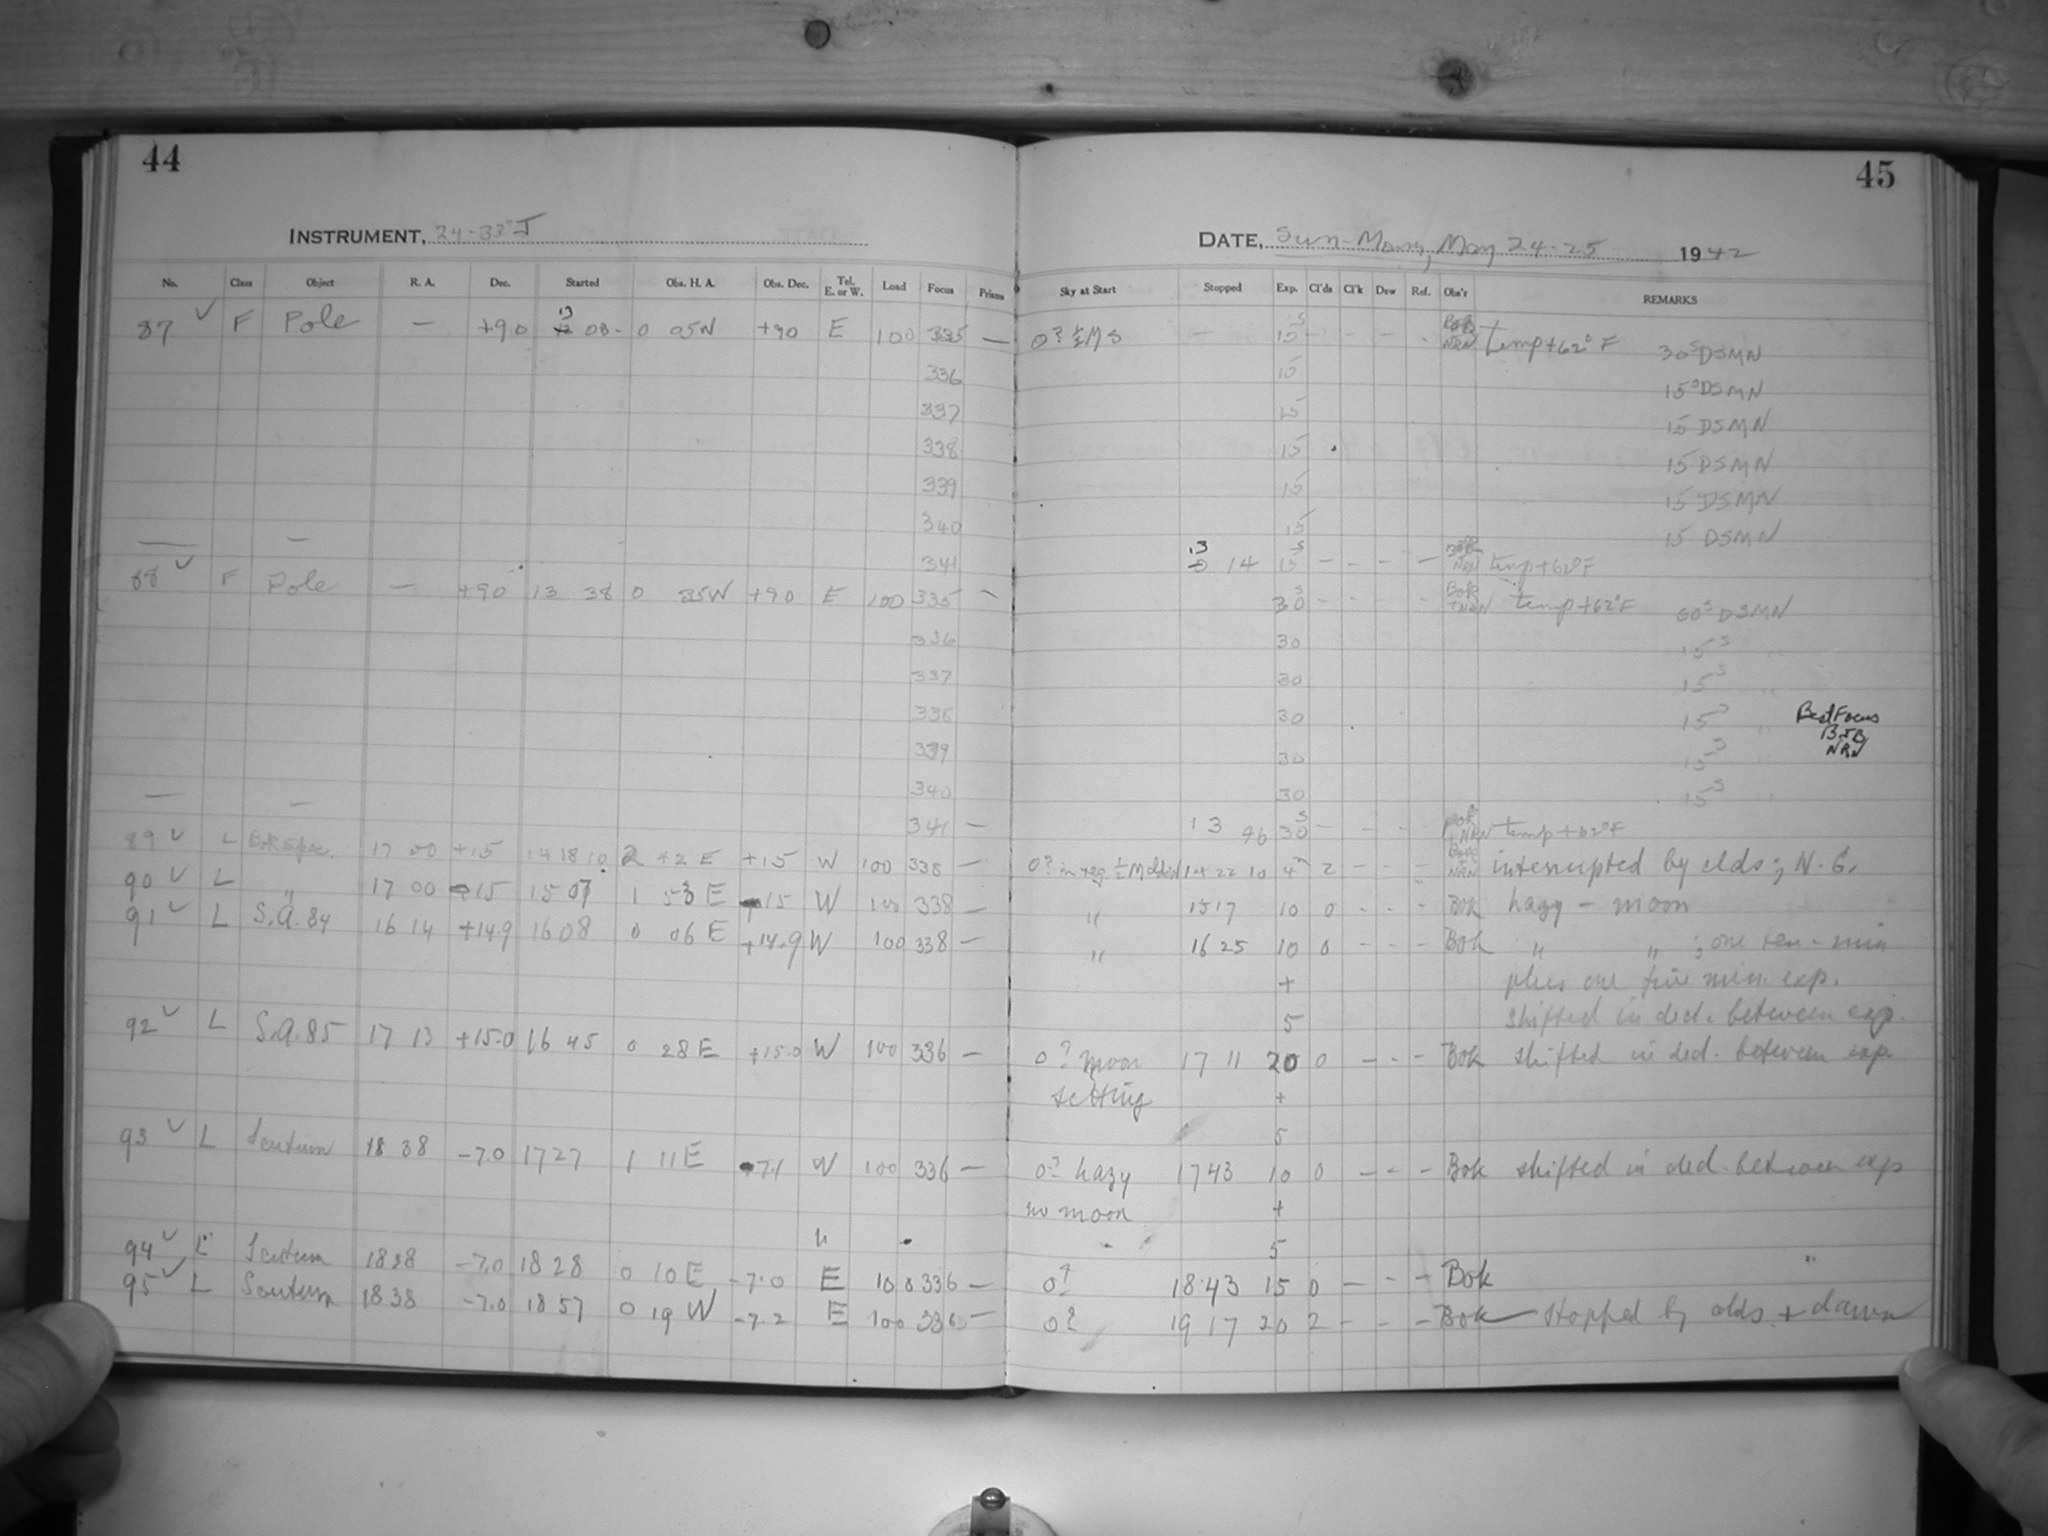 44
INSTRUMENT, 24-33" J
No. Class Object R. A. Dec. Started Obs. H. A. Obs. Dec. Tel. E. or W. Load Focus Prisms
87 ✓ F Pole — +90 13 08- 0 05W +90 E 100 335 —
336
337
338
339
340
— — 341
88 ✓ F Pole — +90 13 38 0 35W +90 E 100 335 —
336
337
338
339
340
— — 341 —
89 ✓ L Bok spec. 17 00 +15 14 18 10 2 42 E +15 W 100 338 —
90 ✓ L " 17 00 +15 15 07 1 53 E +15 W 100 338 —
91 ✓ L S.A. 84 16 14 +14.9 16 08 0 06 E +14.9 W 100 338 —
92 ✓ L S.A. 85 17 13 +15.0 16 45 0 28 E +15.0 W 100 336 —
93 ✓ L Scutum 18 38 -7.0 17 27 1 11 E -7.1 W 100 336 —
94 ✓ L Scutum 18 38 -7.0 18 28 0 10 E -7.0 E 100 336 —
95 ✓ L Scutum 18 38 -7.0 18 57 0 19 W -7.2 E 100 336 —
45
DATE, Sun-Mon, May 24-25 1942
Sky at Start Stopped Exp. Cl'ds Cl'k Dew Ref. Obs'r REMARKS
0? ½ M S — 15s - - - - Bok NRN temp +62° F 30s DSMN
15 15s DSMN
15 15 DSMN
15 15 DSMN
15 15 DSMN
15 15 DSMN
13 14 15s - - - - NRN temp +62° F
30s - - - - Bok +NRN temp +62° F 60s DSMN
30 15s "
30 15s "
30 15s " Best Focus BJB NRN
30 15s "
30 15s "
13 46 30s - - - - Bok +NRN temp +62° F
0? 14 22 10 4m 2 - - - NRN interrupted by clds; N.G.
" 15 17 10 0 - - - Bok hazy - moon
" 16 25 10 0 - - - Bok " " ; one ten-min
+ plus one five min. exp.
5 shifted in decl. between exp.
0? moon 17 11 20 0 - - - Bok shifted in decl. between exp.
setting +
5
0? hazy 17 43 10 0 - - - Bok shifted in decl. between exp
no moon +
5
0? 18 43 15 0 - - - Bok
0? 19 17 20 2 - - - Bok stopped by clds. + dawn